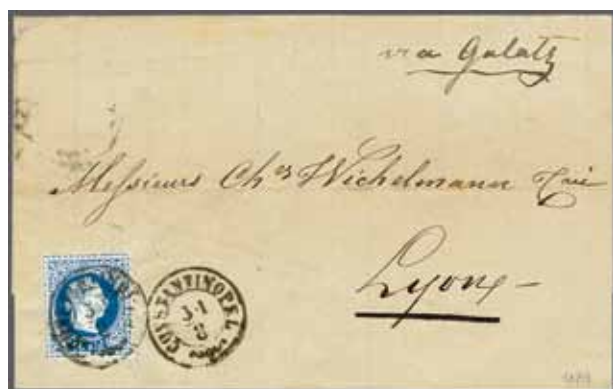 via Galatz
Messieurs Ch.es Wichelmann
Lyon
CONSTANTINOPEL
31